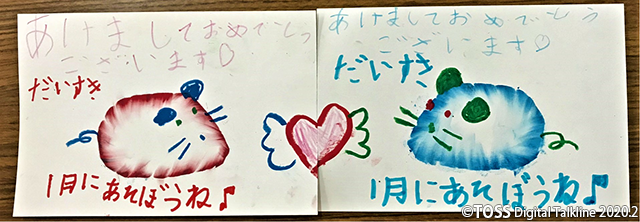 あけましておめでとう
ございます♡
だいすき
1月にあそぼうね♪
あけましておめでとう
ございます♡
だいすき
1月にあそぼうね♪
©TOSS Digital Talkline 2020.2